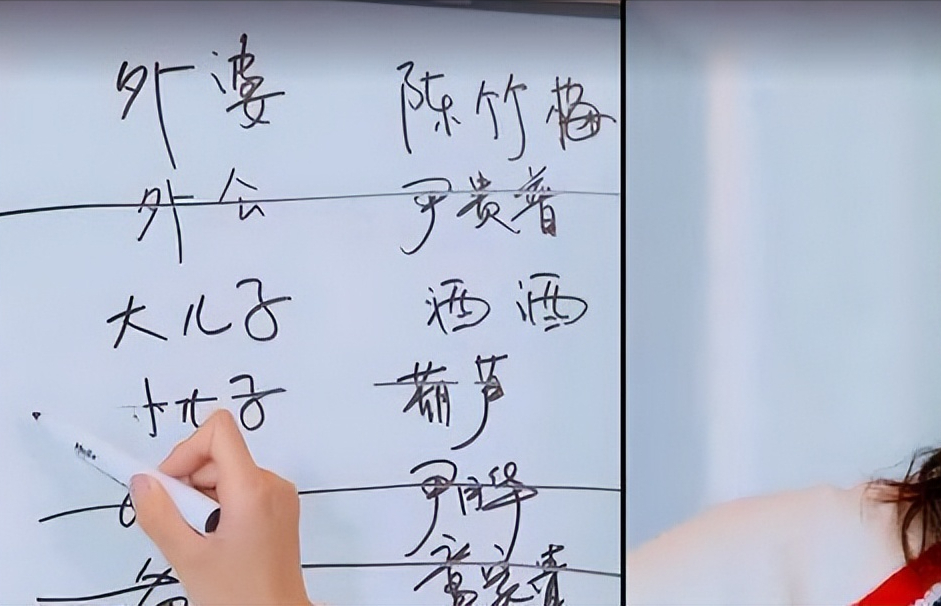 外婆 陈竹梅
外公 尹贵普
大儿子 洒洒
小儿子 葫芦
尹